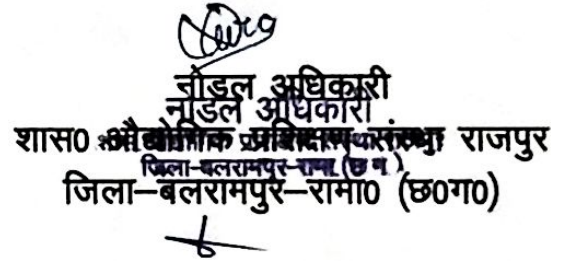 नोडल अधिकारी
नोडल अधिकारी
शास0 औद्योगिक प्रशिक्षण संस्था राजपुर
जिला-बलरामपुर-रामा.(छ.ग.)
जिला–बलरामपुर–रामा0 (छ0ग0)